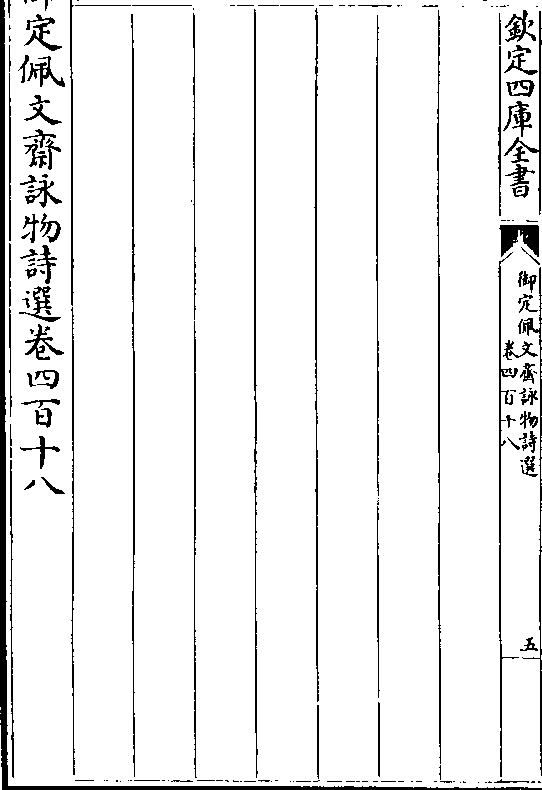 欽定四庫全書
御定佩文齋詠物詩選
卷四百十八
五
御定佩文齋詠物詩選卷四百十八